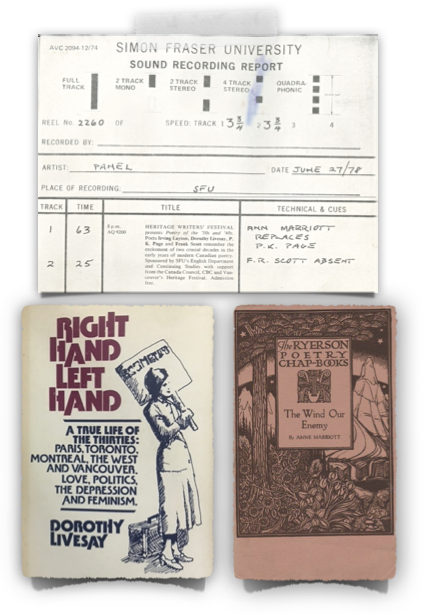 AVC 2094-12/74 SIMON FRASER UNIVERSITY
SOUND RECORDING REPORT
FULL TRACK
2 TRACK MONO
2 TRACK STEREO
4 TRACK STEREO
QUADRA-PHONIC
REEL No. 2260 OF SPEED: TRACK 1 3 3/4 2 3 3/4 3 4
RECORDED BY:
ARTIST: PANEL DATE JUNE 27/78
PLACE OF RECORDING: SFU
TRACK TIME TITLE TECHNICAL & CUES
1 63
2 25
8 p.m.
AQ 9200
HERITAGE WRITERS' FESTIVAL
presents Poetry of the '30s and '40s.
Poets Irving Layton, Dorothy Livesay, P.
K. Page and Frank Scott remember the
excitement of two crucial decades in the
early years of modern Canadian poetry.
Sponsored by SFU's English Department
and Continuing Studies with support
from the Canada Council, CBC and Van-
couver's Heritage Festival. Admission
free.
ANN MARRIOTT
REPLACES
P.K. PAGE
F.R. SCOTT ABSENT
RIGHT
HAND
LEFT
HAND
A TRUE LIFE OF
THE THIRTIES:
PARIS, TORONTO,
MONTREAL, THE WEST
AND VANCOUVER.
LOVE, POLITICS,
THE DEPRESSION
AND FEMINISM.
DOROTHY
LIVESAY
The RYERSON
POETRY
CHAP-BOOKS
The Wind Our
Enemy
By ANNE MARRIOTT